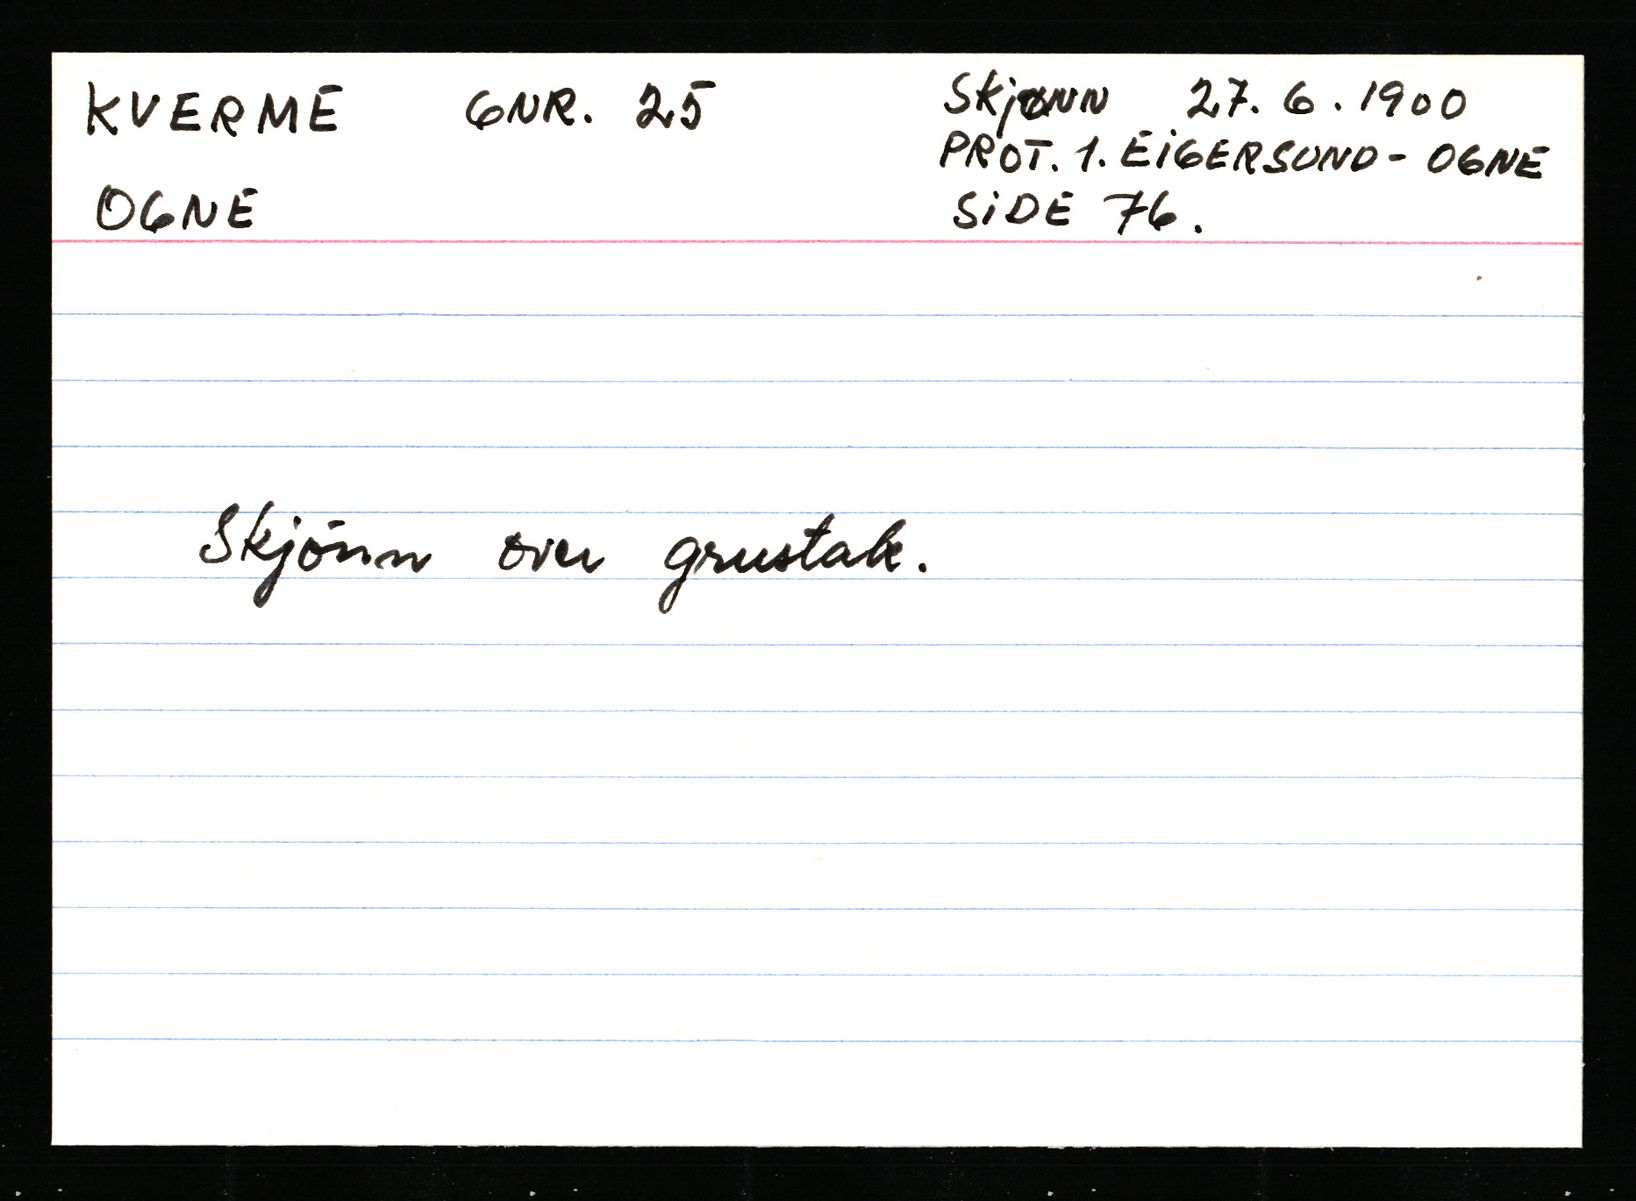 KVERME GNR. 25
OGNE
Skjønn 27. 6. 1900
PROT. 1. EiGERSUND - OGNE
SiDE 76.
Skjönn over grustak.